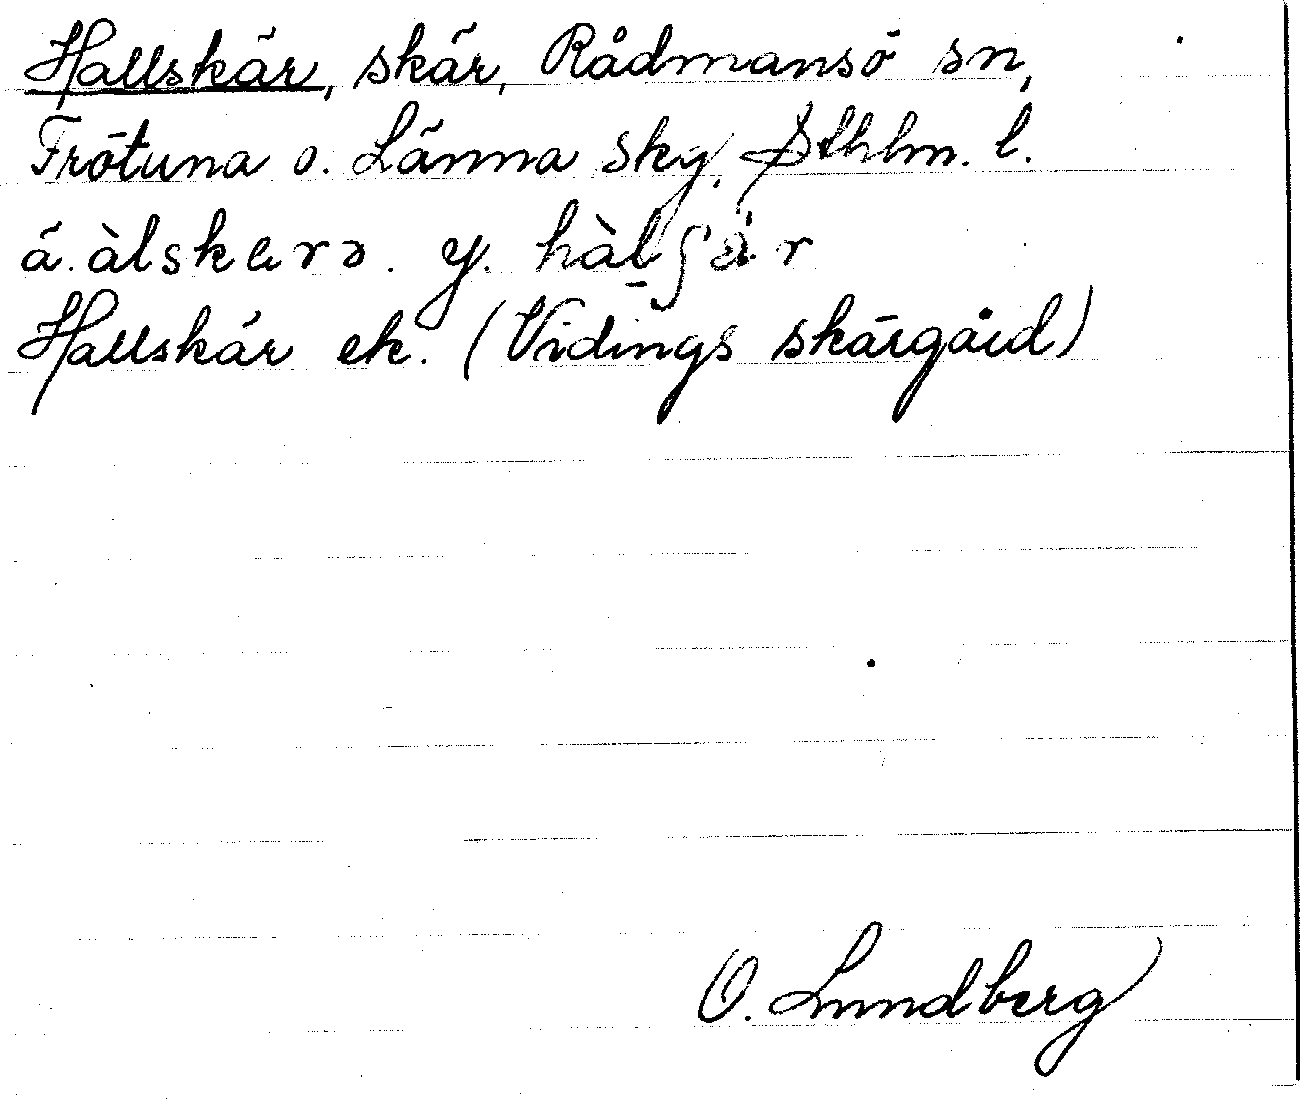 Hallskär, skär, Rådmansö sn,
Frötuna o. Länna sky, Sthlm. l.
ä. àlskerə. y. hàlʃär
Hallskär ek. (Vidings skärgård)
O. Lundberg